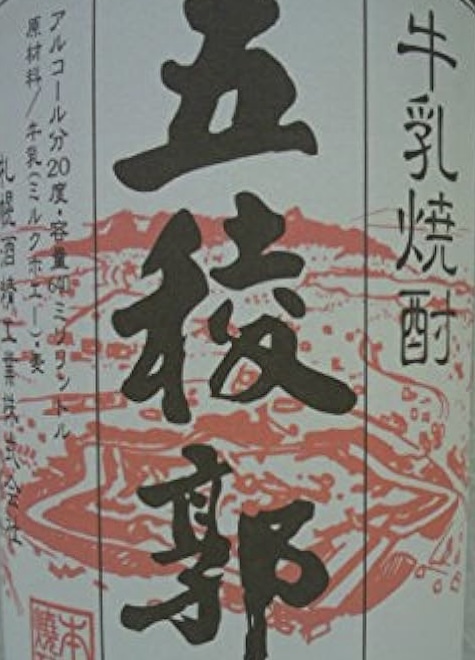 牛乳焼酎
五稜郭
アルコール分20度・容量640ミリリットル
原材料/牛乳(ミルクホエー)・麦
札幌酒精工業株式会社
本
焼